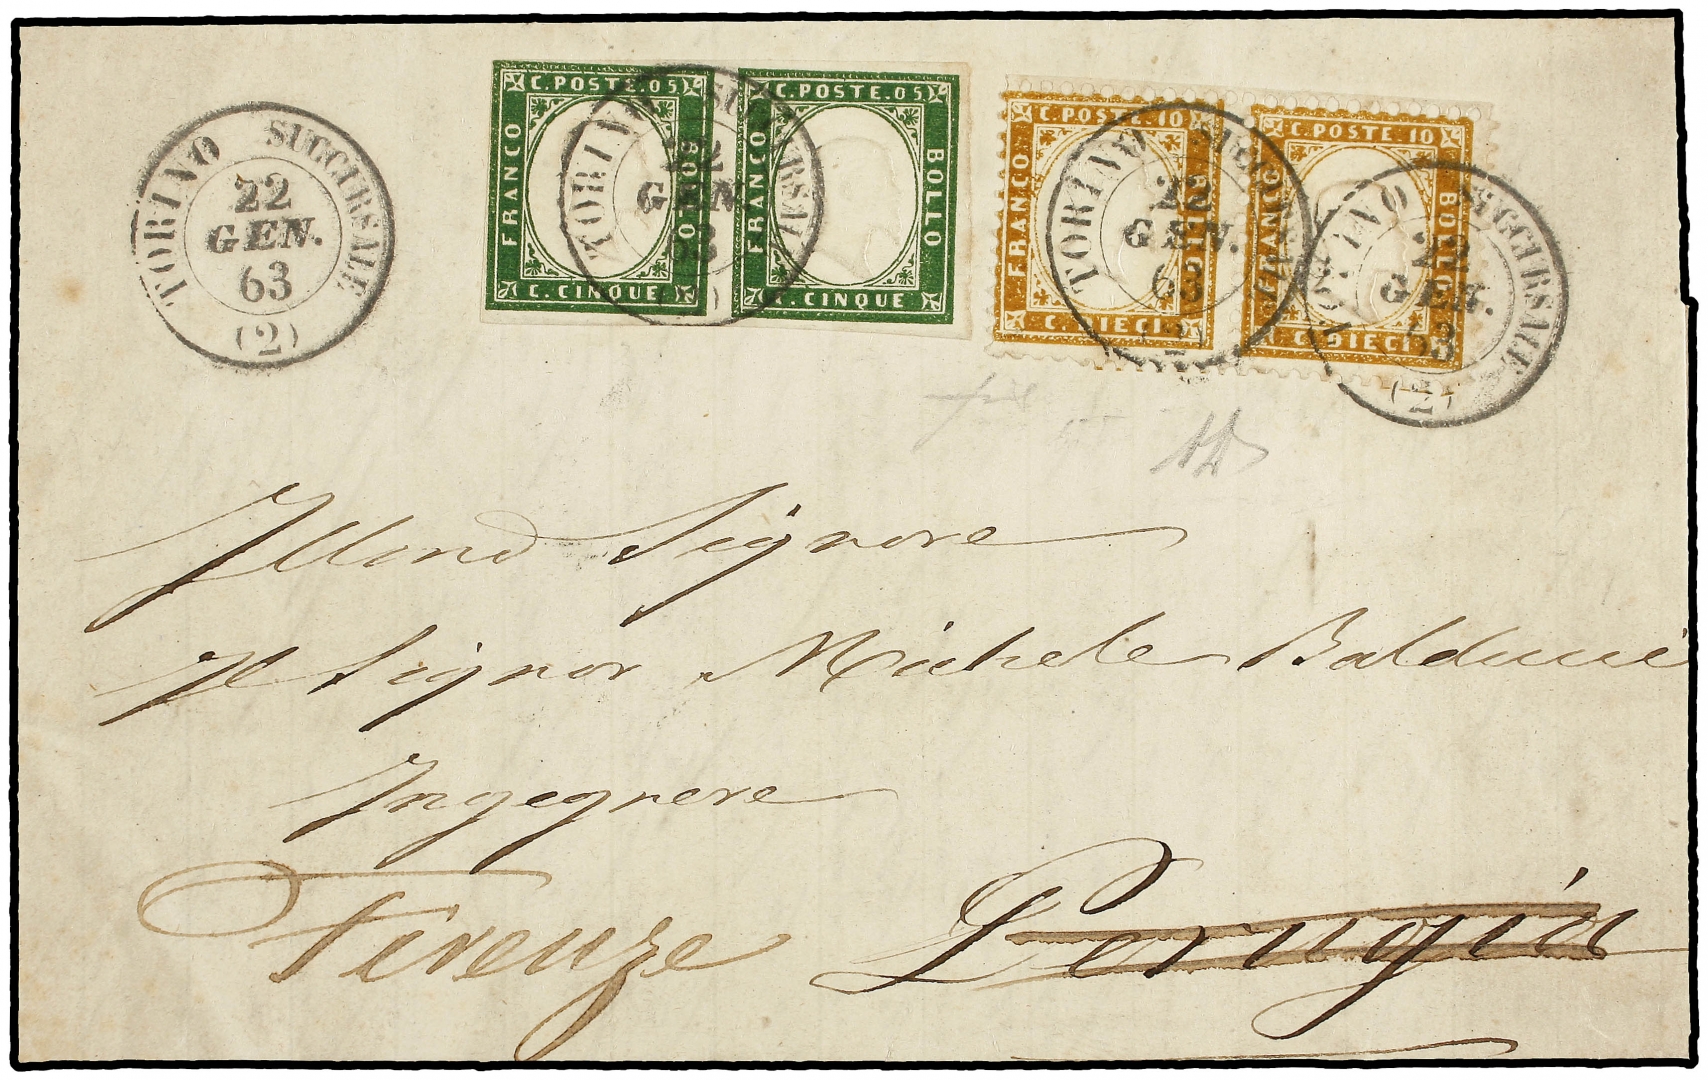 TORINO SUCCURSALE
22
GEN.
63
(2)
C. POSTE. 05
FRANCO
BOLLO
C. CINQUE
C. POSTE. 05
FRANCO
BOLLO
C. CINQUE
TORINO SUCCURSALE
22
GEN.
63
(2)
C. POSTE 10
FRANCO
BOLLO
C. DIECI
C. POSTE 10
FRANCO
BOLLO
C. DIECI
TORINO SUCCURSALE
22
GEN.
63
(2)
TORINO SUCCURSALE
22
GEN.
63
(2)
Illmo Signore
Il Signor Michele Balducci
Ingegnere
Firenze Perugia